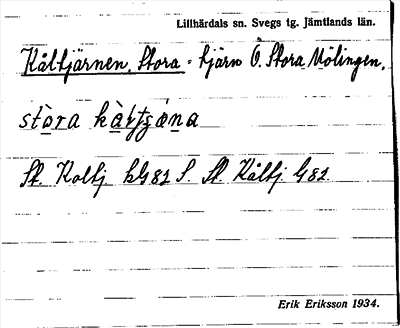 Lillhärdals sn. Svegs tg. Jämtlands län.
Kåltjärnen, Stora - tjärn Ö. Stora Mölingen.
stora
St. Koltj. hG82 S. St. Kåltj. G82
Erik Eriksson 1934.